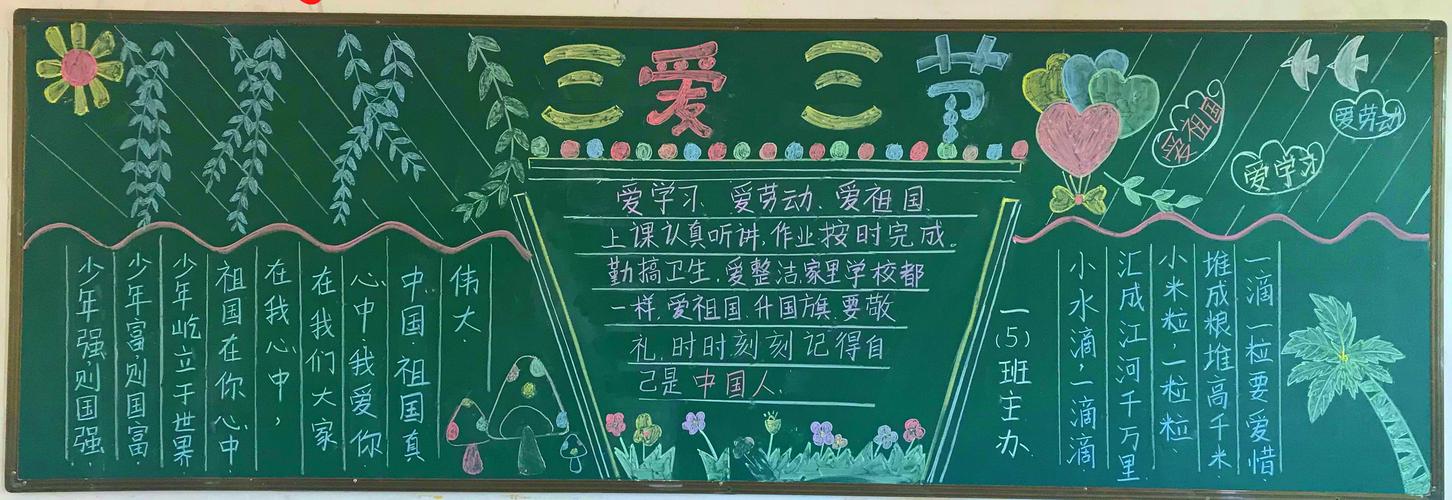 三爱三节
爱祖国
爱劳动
爱学习
少年强,则国强.
少年富,则国富.
少年屹立于世界
祖国在你心中
在我心中,
在我们大家
心中.我爱你.
中国.祖国真
伟大.
爱学习、爱劳动、爱祖国.
上课认真听讲,作业按时完成。
勤搞卫生,爱整洁,家里学校都
一样.爱祖国.升国旗.要敬
礼,时时刻刻记得自
己是中国人.
一(5)班主办
小水滴,一滴滴
汇成江河千万里
小米粒,一粒粒
堆成粮堆高千米
一滴一粒要爱惜.